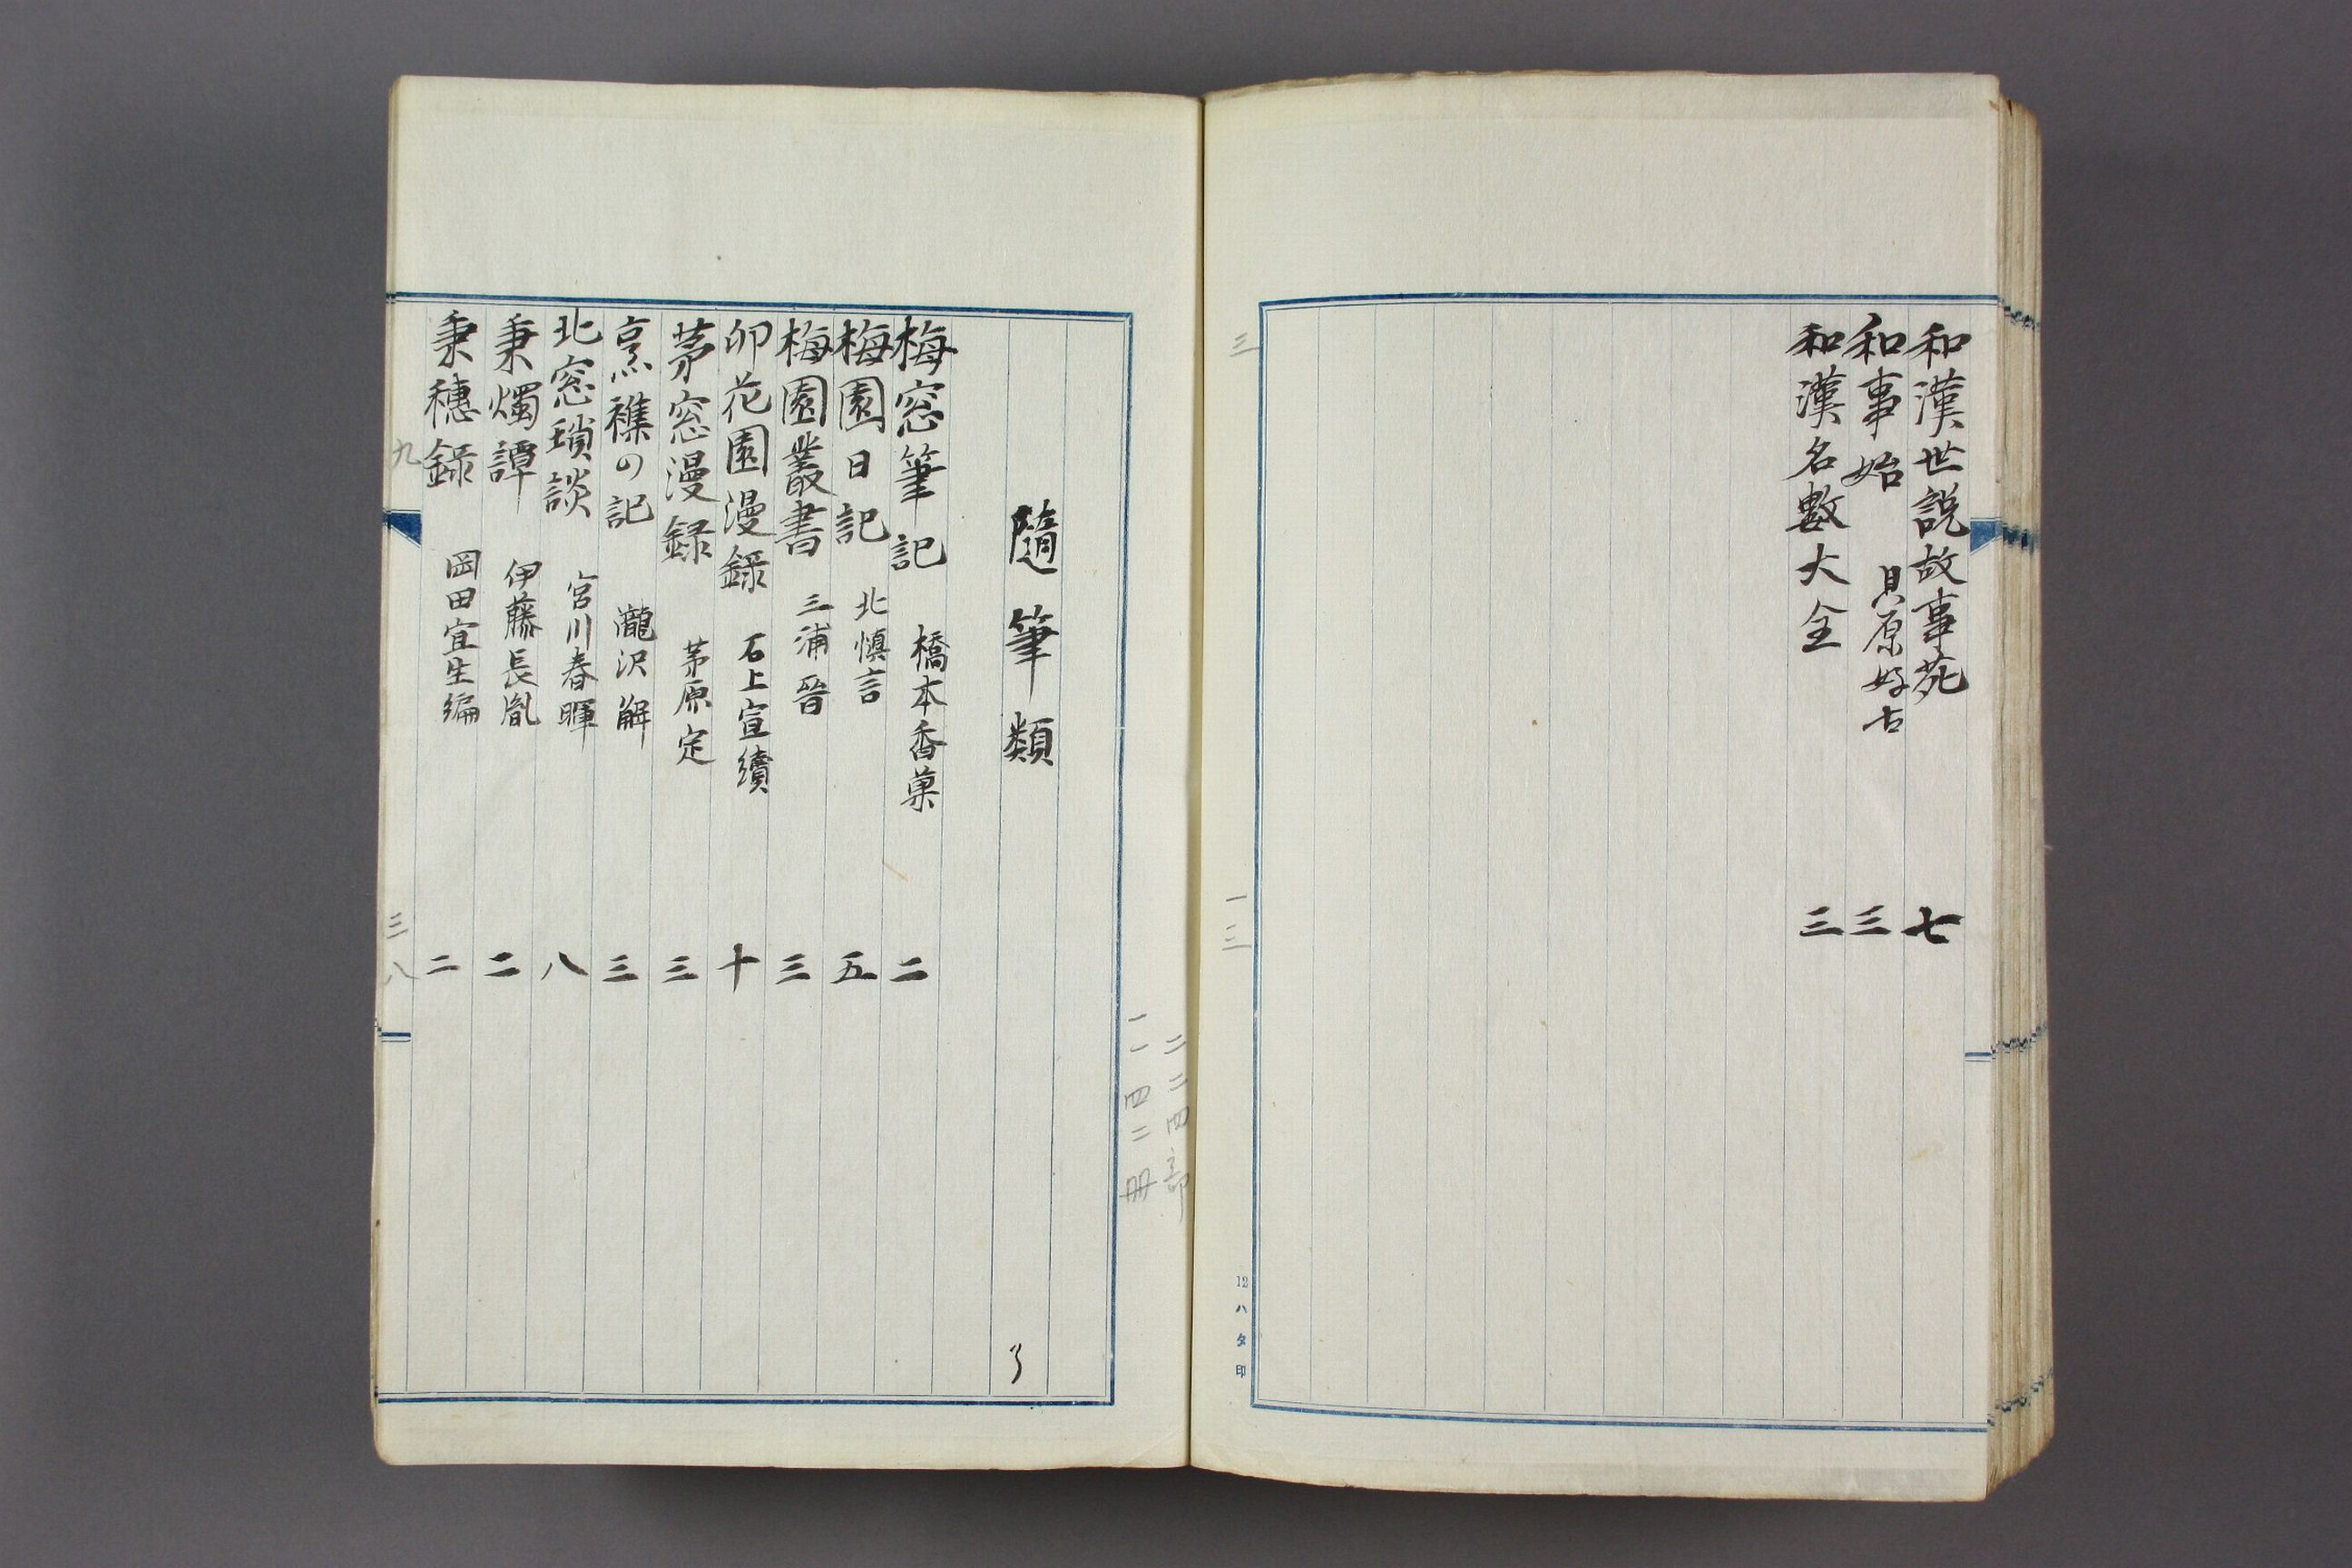 和漢世説故事苑 七
和事始 貝原好古 三
和漢名數大全 三
三 一三
12ハタ印
二二四部
一一四二冊
隨筆類
梅窓筆記 橋本香菓 二
梅園日記 北慎言 五
梅園叢書 三浦晉 三
卯花園漫録 石上宣續 十
茅窓漫録 茅原定 三
烹襍の記 瀧沢解 三
北窓瑣談 宮川春暉 八
秉燭譚 伊藤長胤 二
秉穂録 岡田宜生編 二
九 三八